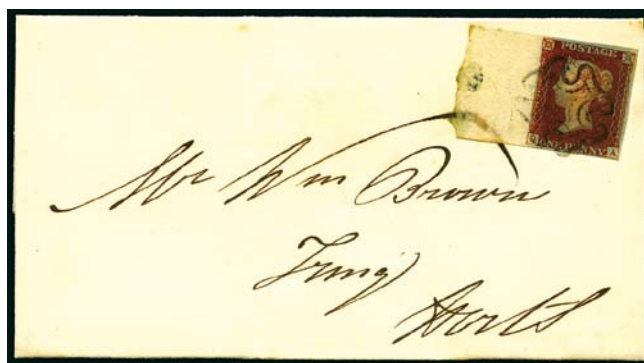 POSTAGE
ONE PENNY
A
Mr Wm Brown
Tring
Herts